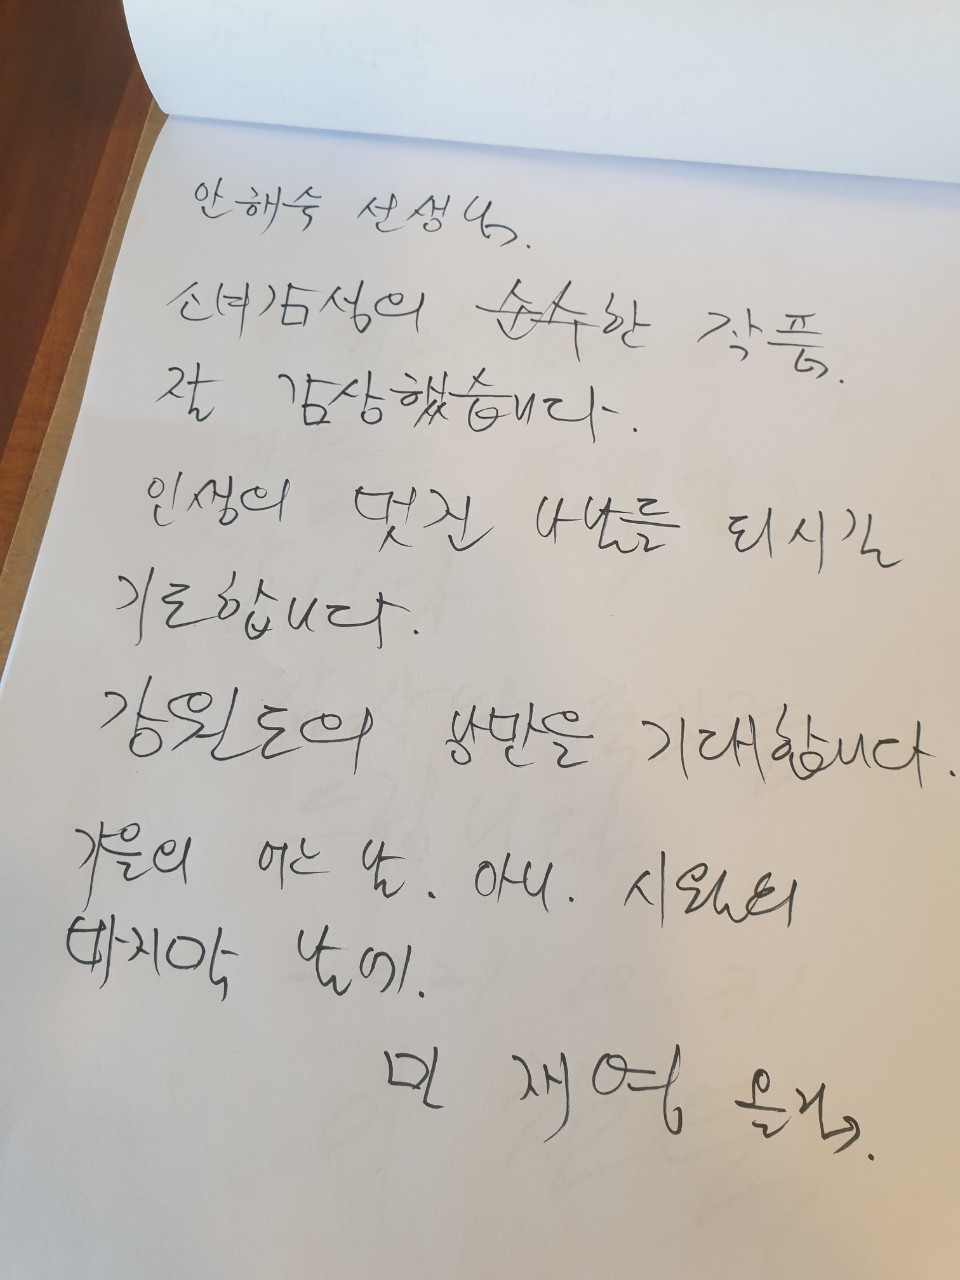 안해숙 선생님.
소녀감성의 순수한 작품.
잘 감상했습니다.
인생의 멋진 나날들 되시길
기도합니다.
강원도의 방문을 기대합니다.
가을의 어느 날. 아니. 시월의
마지막 날에.
민 재 영 올림.